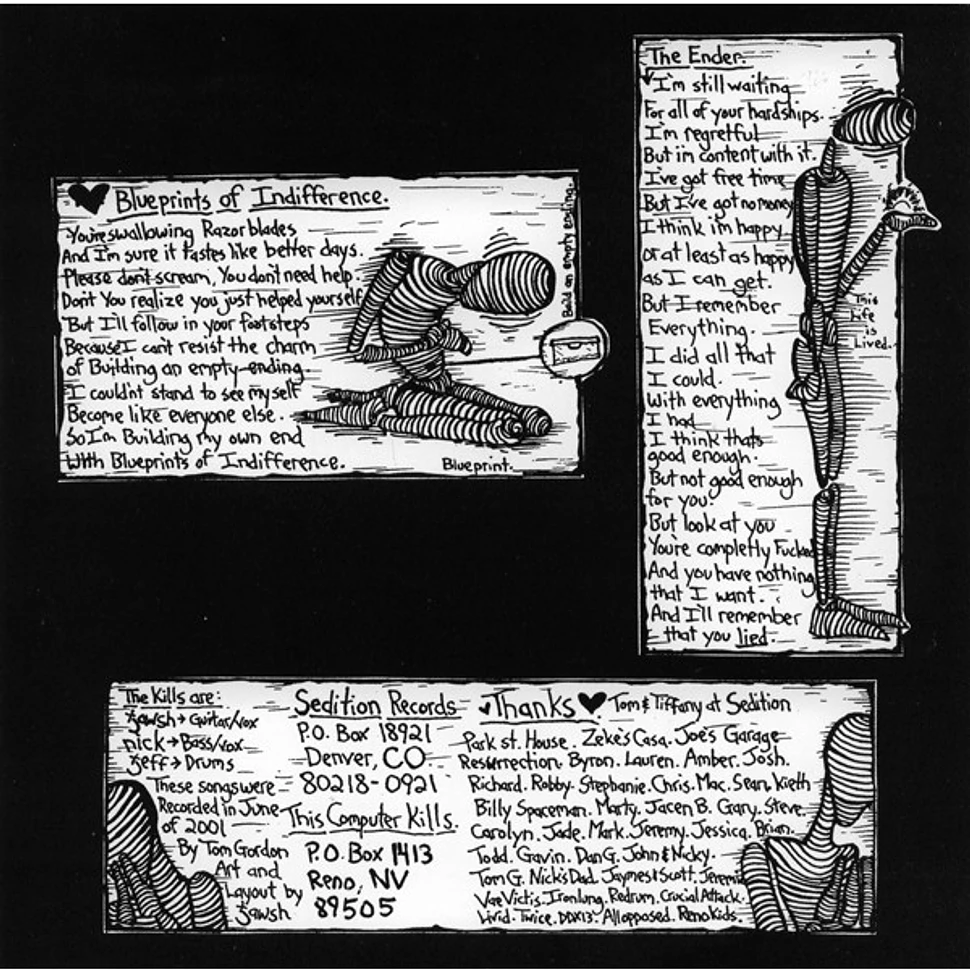 Blueprints of Indifference.
You're swallowing Razor blades
And I'm sure it tastes like better days.
Please don't scream, You don't need help.
Don't You realize you just helped yourself
But I'll follow in your footsteps
Because I can't resist the charm
of Building an empty ending.
I couldn't stand to see myself
Become like everyone else.
So I'm Building my own end
With Blueprints of Indifference.
Blueprint.
Build an empty ending.
The Ender.
I'm still waiting
For all of your hardships.
I'm regretful
But i'm content with it.
I've got free time
But I've got no money
I think i'm happy
or at least as happy
as I can get.
But I remember
Everything.
I did all that
I could.
With everything
I had
I think thats
good enough.
But not good enough
for you.
But look at you
You're completly Fucked
And you have nothing
that I want.
And I'll remember
that you lied.
This
Life
is
Lived.
The Kills are:
jawsh→Guitar/vox
nick→Bass/vox
jeff→Drums
These songs were
Recorded in June
of 2001
By Tom Gordon
Art and
Layout by
jawsh
Sedition Records
P.O. Box 18921
Denver, CO
80218-0921
This Computer Kills.
P.O. Box 1413
Reno, NV
89505
Thanks Tom & Tiffany at Sedition
Park st. House. Zeke's Casa. Joe's Garage
Resurrection. Byron. Lauren. Amber. Josh.
Richard. Robby. Stephanie. Chris. Mac. Sean. Kieth
Billy Spaceman. Marty. Jacen B. Gary. Steve.
Carolyn. Jade. Mark. Jeremy. Jessica. Brian.
Todd. Gavin. Dan G. John & Nicky.
Tom G. Nick's Dad. Jaymes & Scott. Jeremie
Vae Victis. Iron lung. Redrum. Crucial Attack.
Livid. Twice. DDX13. All opposed. Reno Kids.